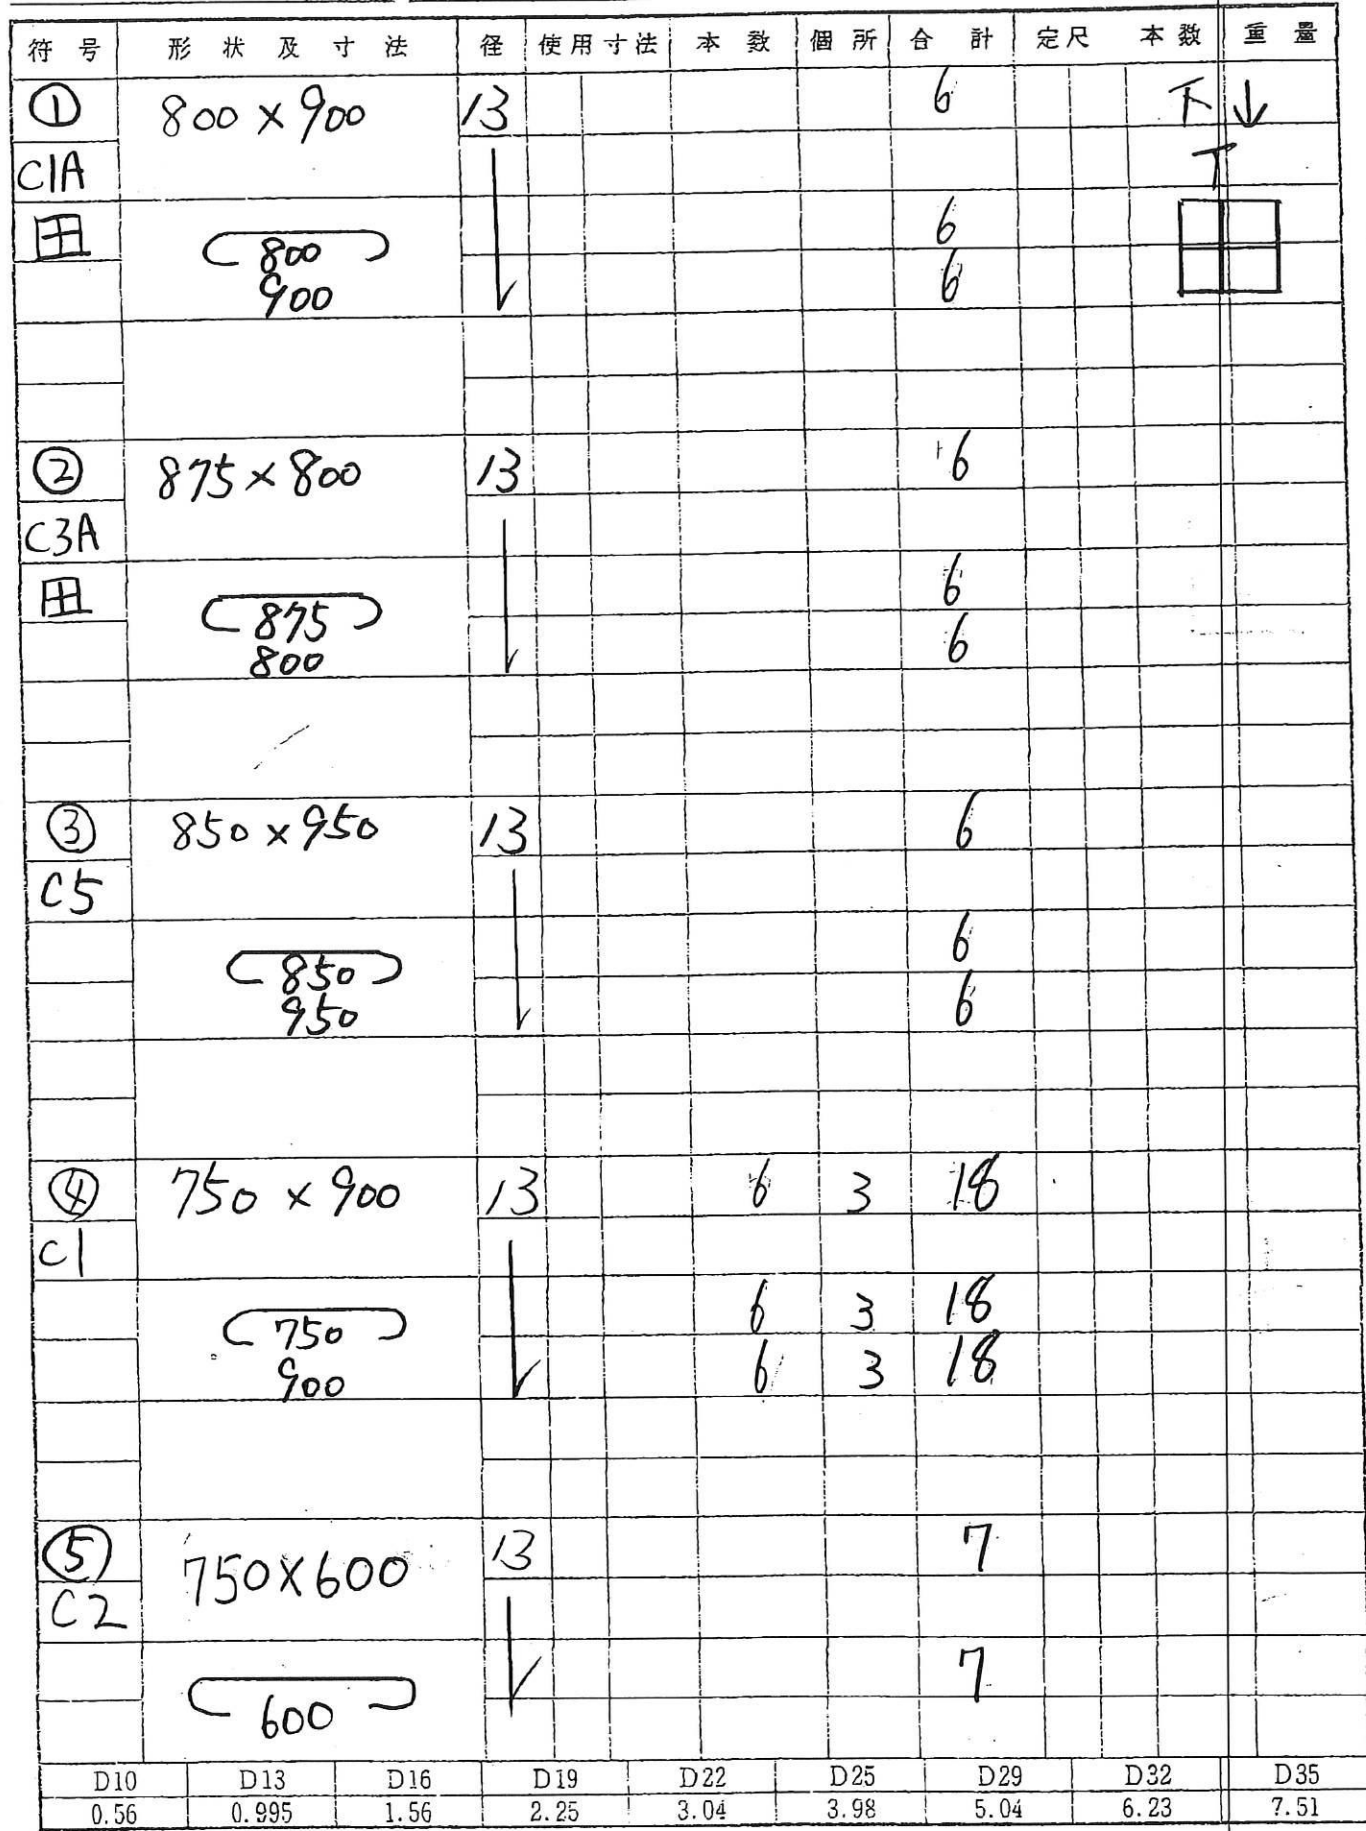 符号 形状及寸法 径 使用寸法 本数 個所 合計 定尺 本数 重量
① 800×900 13 6 下↓
C1A 下
田 800 6
900 6
② 875×800 13 6
C3A
田 875 6
800 6
③ 850×950 13 6
C5
850 6
950 6
④ 750×900 13 6 3 18
C1
750 6 3 18
900 6 3 18
⑤ 750×600 13 7
C2
600 7
D10 D13 D16 D19 D22 D25 D29 D32 D35
0.56 0.995 1.56 2.25 3.04 3.98 5.04 6.23 7.51